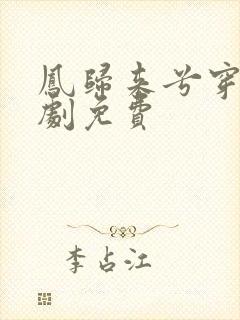 鳳歸来兮穿
劇免費
李占江